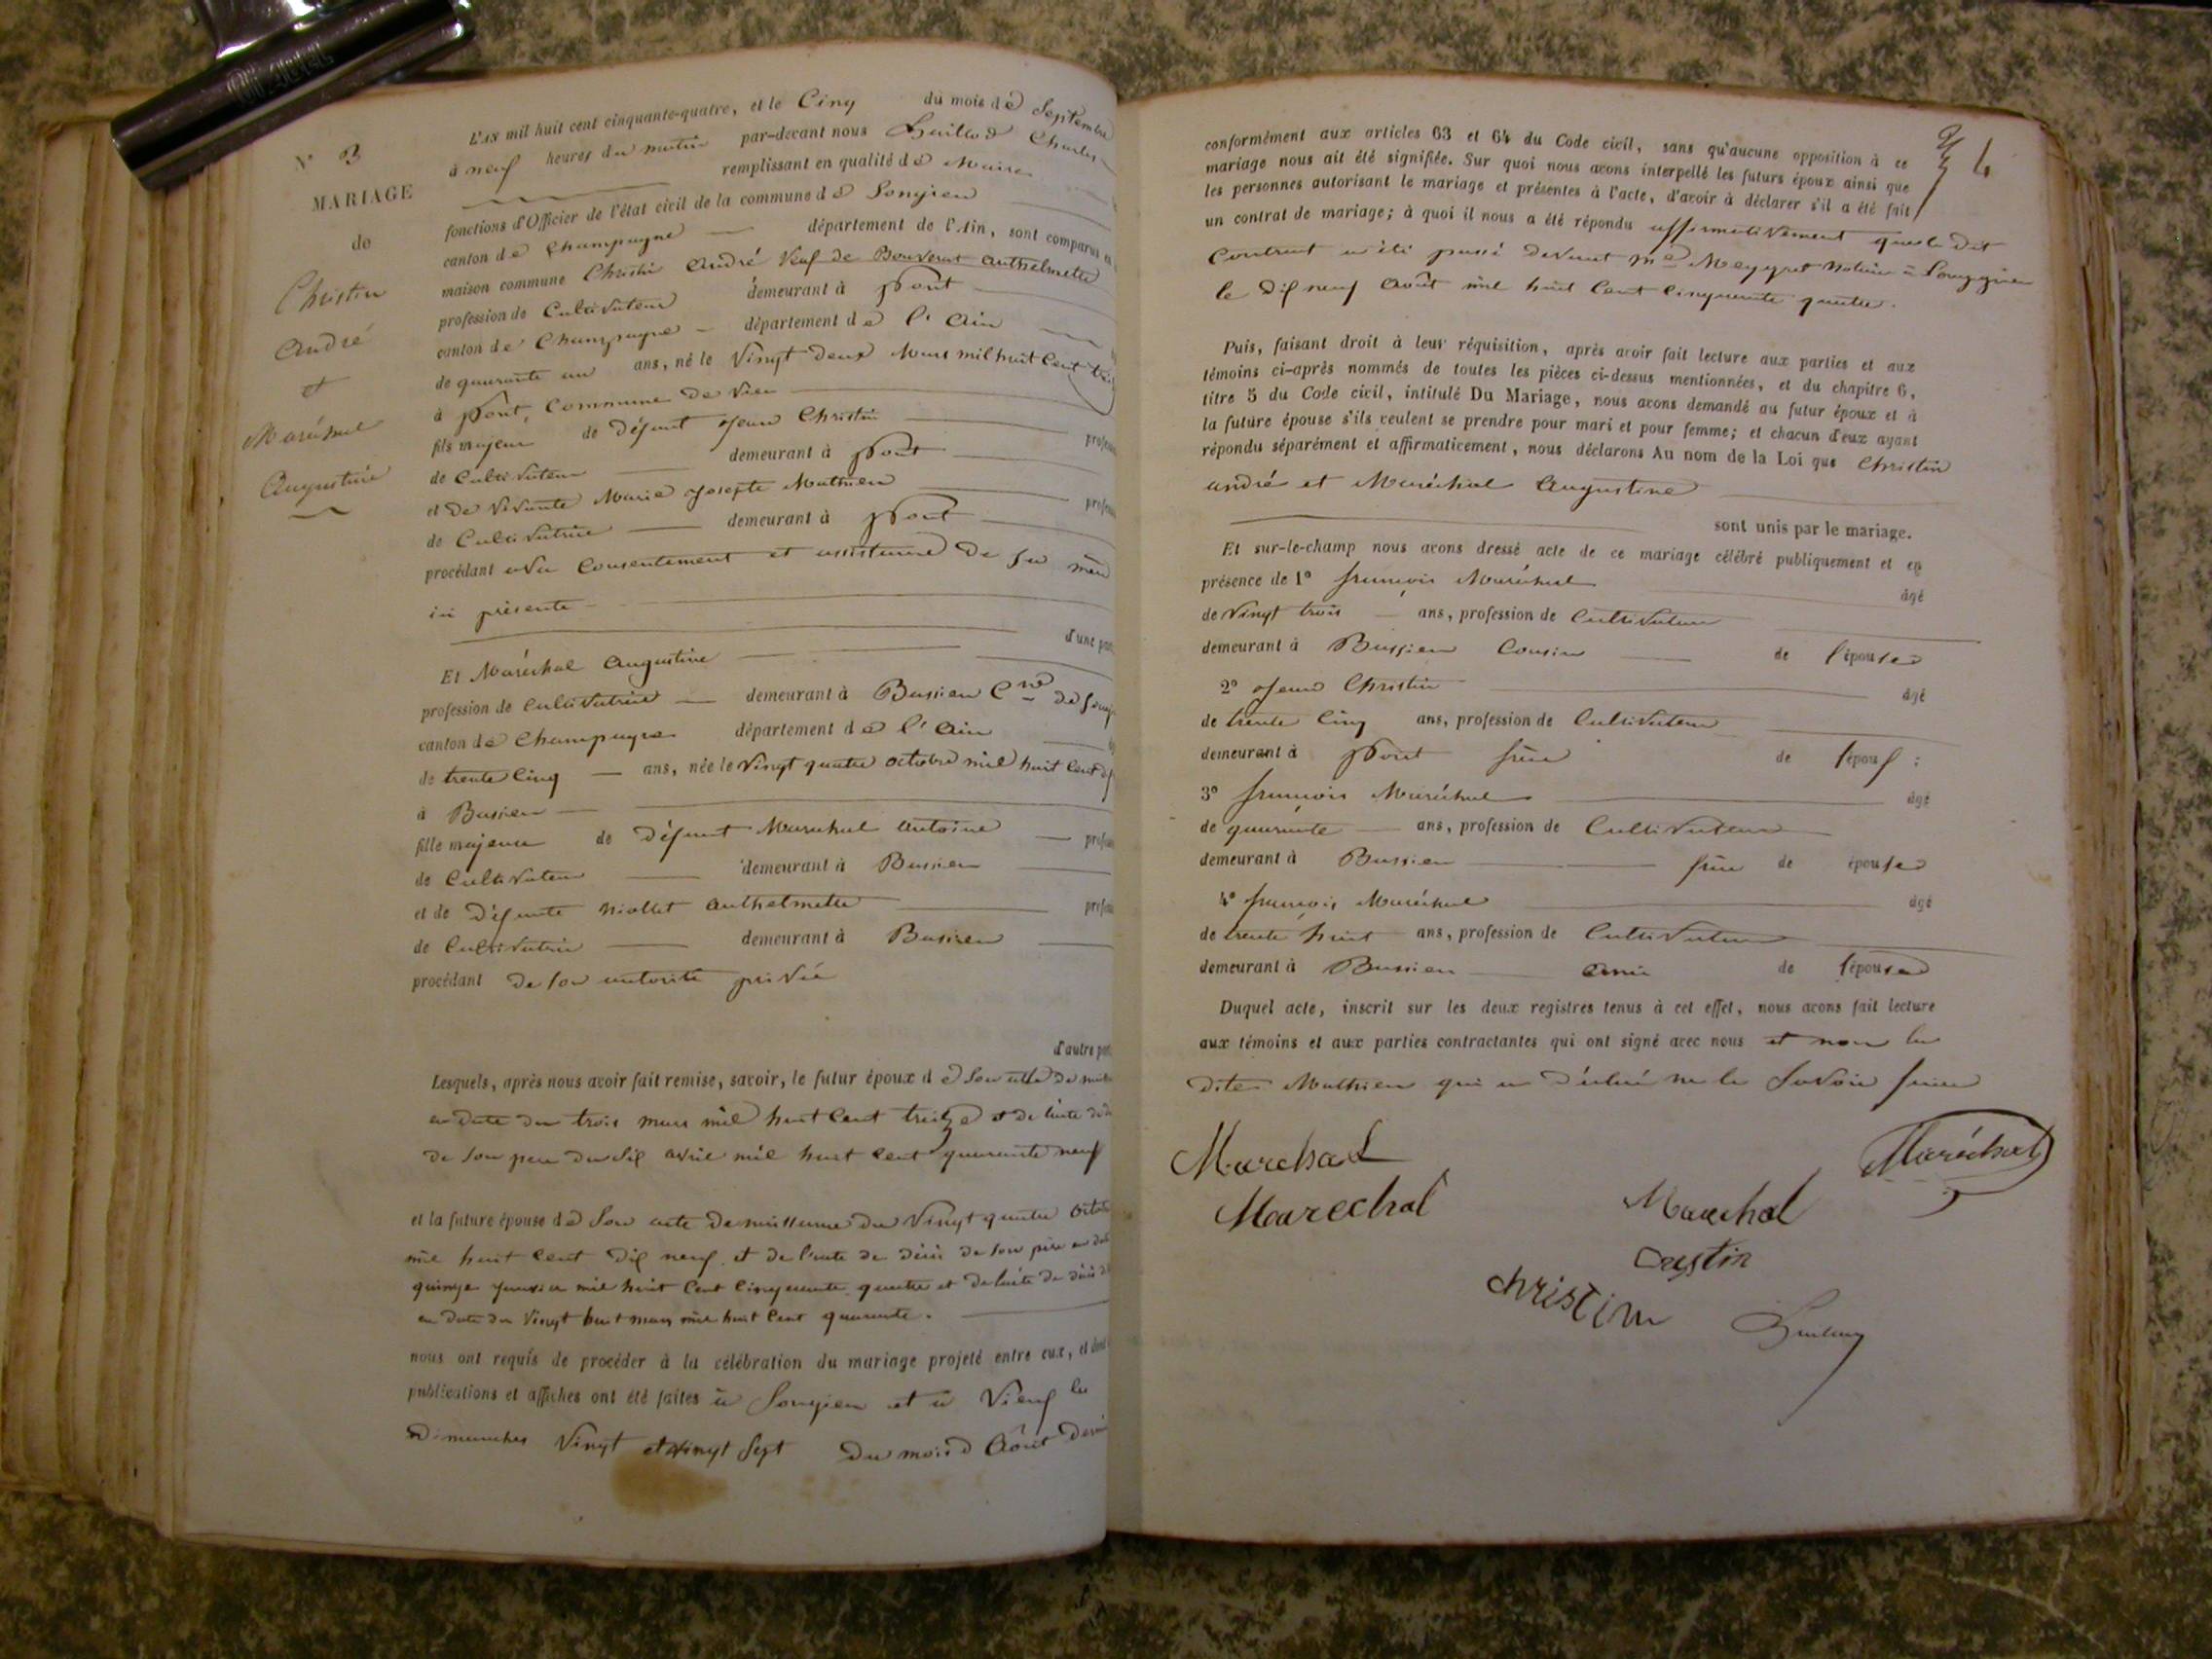 N° 3
MARIAGE
de
Christin
André
et
Maréchal
Augustine
L'AN mil huit cent cinquante-quatre, et le Cinq du mois de Septembre
à neuf heures du matin par-devant nous Charles
remplissant en qualité de Maire
fonctions d'Officier de l'état civil de la commune de Songieu
canton de Champagne département de l'Ain, sont comparus en
maison commune Christin André Veuf de Bouverat Anthelmette
profession de Cultivateur demeurant à Pont
canton de Champagne département de l'Ain
de quarante un ans, né le Vingt deux Mars mil huit Cent
à Pont, Commune de Vieu
fils majeur de Défunt Jean Christin
de Cultivateur demeurant à Pont
et de Vivante Marie Josepte Mathieu
de Cultivatrice demeurant à Pont
procédant avec Consentement et assistance De sa mère
ici présente
d'une part
Et Maréchal Augustine
profession de Cultivatrice demeurant à Bassieu Cne de
canton de Champagne département de l'Ain
de trente cinq ans, née le Vingt quatre octobre mil huit Cent
à Bassieu
fille majeure de Défunt Maréchal Antoine
de Cultivateur demeurant à Bassieu
et de Défunte Niollet Anthelmette
de Cultivatrice demeurant à Bassieu
procédant de son autorité privée
d'autre part
Lesquels, après nous avoir fait remise, savoir, le futur époux de Son acte De
en date du trois mars mil huit Cent treize et de l'acte de
de son père du dix avril mil huit cent quarante neuf
et la future épouse de Son acte de naissance du Vingt quatre
mil huit cent dix neuf et de l'acte de décès de son père en date
quinze Janvier mil huit Cent Cinquante quatre et de l'acte de décès
en date du Vingt huit mars mil huit Cent quarante.
nous ont requis de procéder à la célébration du mariage projeté entre eux, et dont
publications et affiches ont été faites à Songieu et à Vieu les
Dimanches Vingt et Vingt Sept du mois d'Août
4
conformément aux articles 63 et 64 du Code civil, sans qu'aucune opposition à ce
mariage nous ait été signifiée. Sur quoi nous avons interpellé les futurs époux ainsi que
les personnes autorisant le mariage et présentes à l'acte, d'avoir à déclarer s'il a été fait
un contrat de mariage; à quoi il nous a été répondu affirmativement que le dit
Contrat a été passé devant Me Meygret Notaire à
le Dix neuf Août mil huit Cent Cinquante quatre.
Puis, faisant droit à leur réquisition, après avoir fait lecture aux parties et aux
témoins ci-après nommés de toutes les pièces ci-dessus mentionnées, et du chapitre 6,
titre 5 du Code civil, intitulé Du Mariage, nous avons demandé au futur époux et à
la future épouse s'ils veulent se prendre pour mari et pour femme; et chacun d'eux ayant
répondu séparément et affirmativement, nous déclarons Au nom de la Loi que Christin
André et Maréchal Augustine
sont unis par le mariage.
Et sur-le-champ nous avons dressé acte de ce mariage célébré publiquement et en
présence de 1° françois Maréchal âgé
de Vingt trois ans, profession de Cultivateur
demeurant à Bassieu Cousin de l'épouse
2° Jean Christin âgé
de trente Cinq ans, profession de Cultivateur
demeurant à Pont frère de l'époux;
3° françois Maréchal âgé
de quarante ans, profession de Cultivateur
demeurant à Bassieu frère de épouse
4° françois Maréchal âgé
de trente huit ans, profession de Cultivateur
demeurant à Bassieu ami de l'épouse
Duquel acte, inscrit sur les deux registres tenus à cet effet, nous avons fait lecture
aux témoins et aux parties contractantes qui ont signé avec nous et non la
dite Mathieu qui a déclaré ne le Savoir faire
Marchal
Maréchal
Marechal
Marechal
Crystin
christin